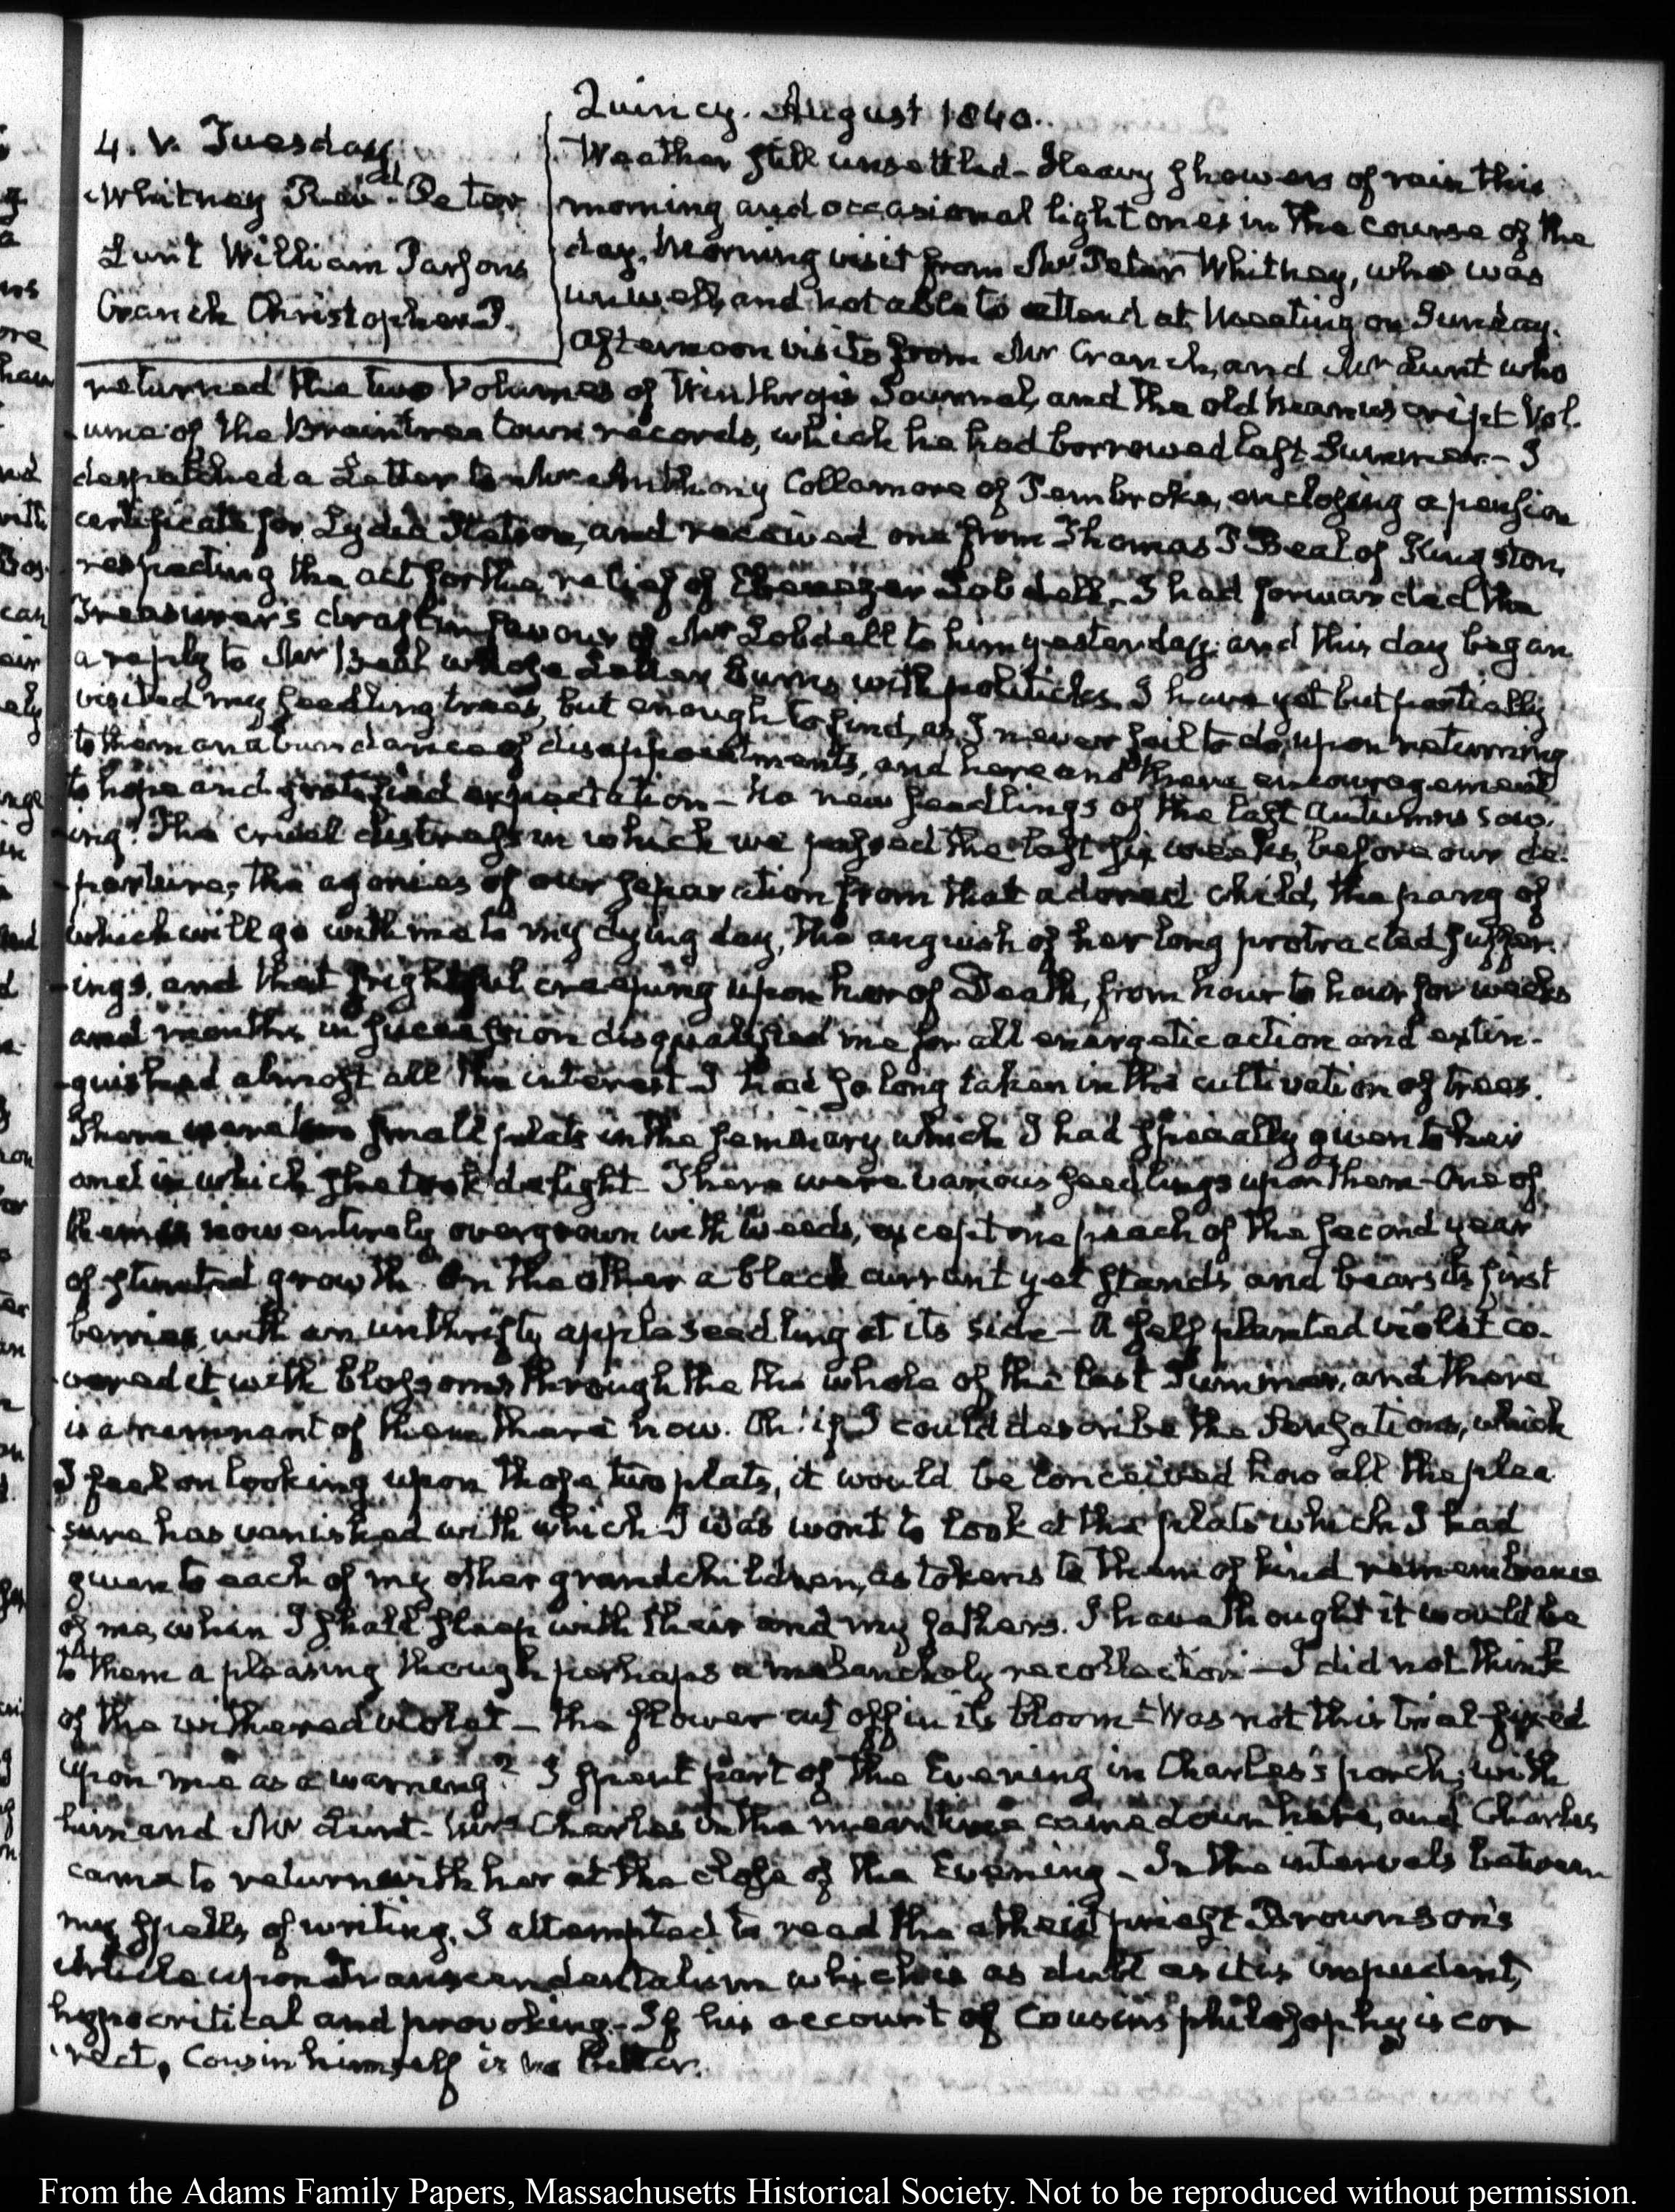 Quincy. August 1840.
4. V. Tuesday.
Whitney Rev.d Peter
Lunt William Parsons
Cranch Christopher P.
Weather still unsettled - Heavy showers of rain this
morning and occasional light ones in the course of the
day. Morning visit from Mr Peter Whitney, who was
unwell, and not able to attend at Meeting on Sunday.
Afternoon visits from Mr Cranch, and Mr Lunt who
returned the two Volumes of Winthrop's Journal, and the old manuscript Vol-
-ume of the Braintree town records, which he had borrowed last Summer. - I
despatched a Letter to Mr Anthony Collamore of Pembroke, enclosing a pension
certificate for Lydia Stetson, and received one from Thomas P Beal of Kingston,
respecting the act for the relief of Ebenezer Lobdell. I had forwarded the
Treasurer's draft in favour of Mr Lobdell to him yesterday: and this day began
a reply to Mr Beal whose Letter burns with politicks. I have yet but partially
visited my seedling trees, but enough to find, as I never fail to do, upon returning
to them an abundance of disappointments, and here and there encouragement
to hope and gratified expectation - No new seedlings of the last Autumn's sow-
-ing. The cruel distress in which we passed the last six weeks, before our de-
-parture; the agonies of our separation from that adored child, the pang of
which will go with me to my dying day, the anguish of her long protracted suffer-
-ings, and that frightful creeping upon her of Death, from hour to hour for weeks
and months in succession disqualified me for all energetic action and extin-
-guished almost all the interest I had so long taken in the cultivation of trees.
There were two small plats in the seminary which I had specially given to her
and in which she took delight - There were various seedlings upon them - One of
them is now entirely overgrown with weeds, except one peach of the second year
of stunted growth. On the other a black currant yet stands and bears its first
berries, with an unthrifty apple seedling at its side - A self planted violet co-
-vered it with blossoms through the the whole of the last Summer, and there
is a remnant of them there now. Oh! if I could describe the Sensations, which
I feel on looking upon those two plats, it would be conceived how all the plea
-sure has vanished with which I was wont to look at the plats which I had
given to each of my other grandchildren, as tokens to them of kind remembrance
of me, when I shall sleep with their and my fathers. I have thought it would be
to them a pleasing though perhaps a melancholy recollection - I did not think
of the withered violet - the flower cut off in its bloom - Was not this trial fixed
upon me as a warning? I spent part of the Evening in Charles's porch, with
him and Mr Lunt. Mrs Charles in the mean time came down here, and Charles
came to return with her at the close of the Evening - In the intervals between
my spells of writing, I attempted to read the atheist priest Brownson's
Article upon Transcendentalism which is as dull as it is impudent,
hypocritical and provoking. - If his account of Cousin's philosophy is cor
-rect, Cousin himself is no better.
From the Adams Family Papers, Massachusetts Historical Society. Not to be reproduced without permission.